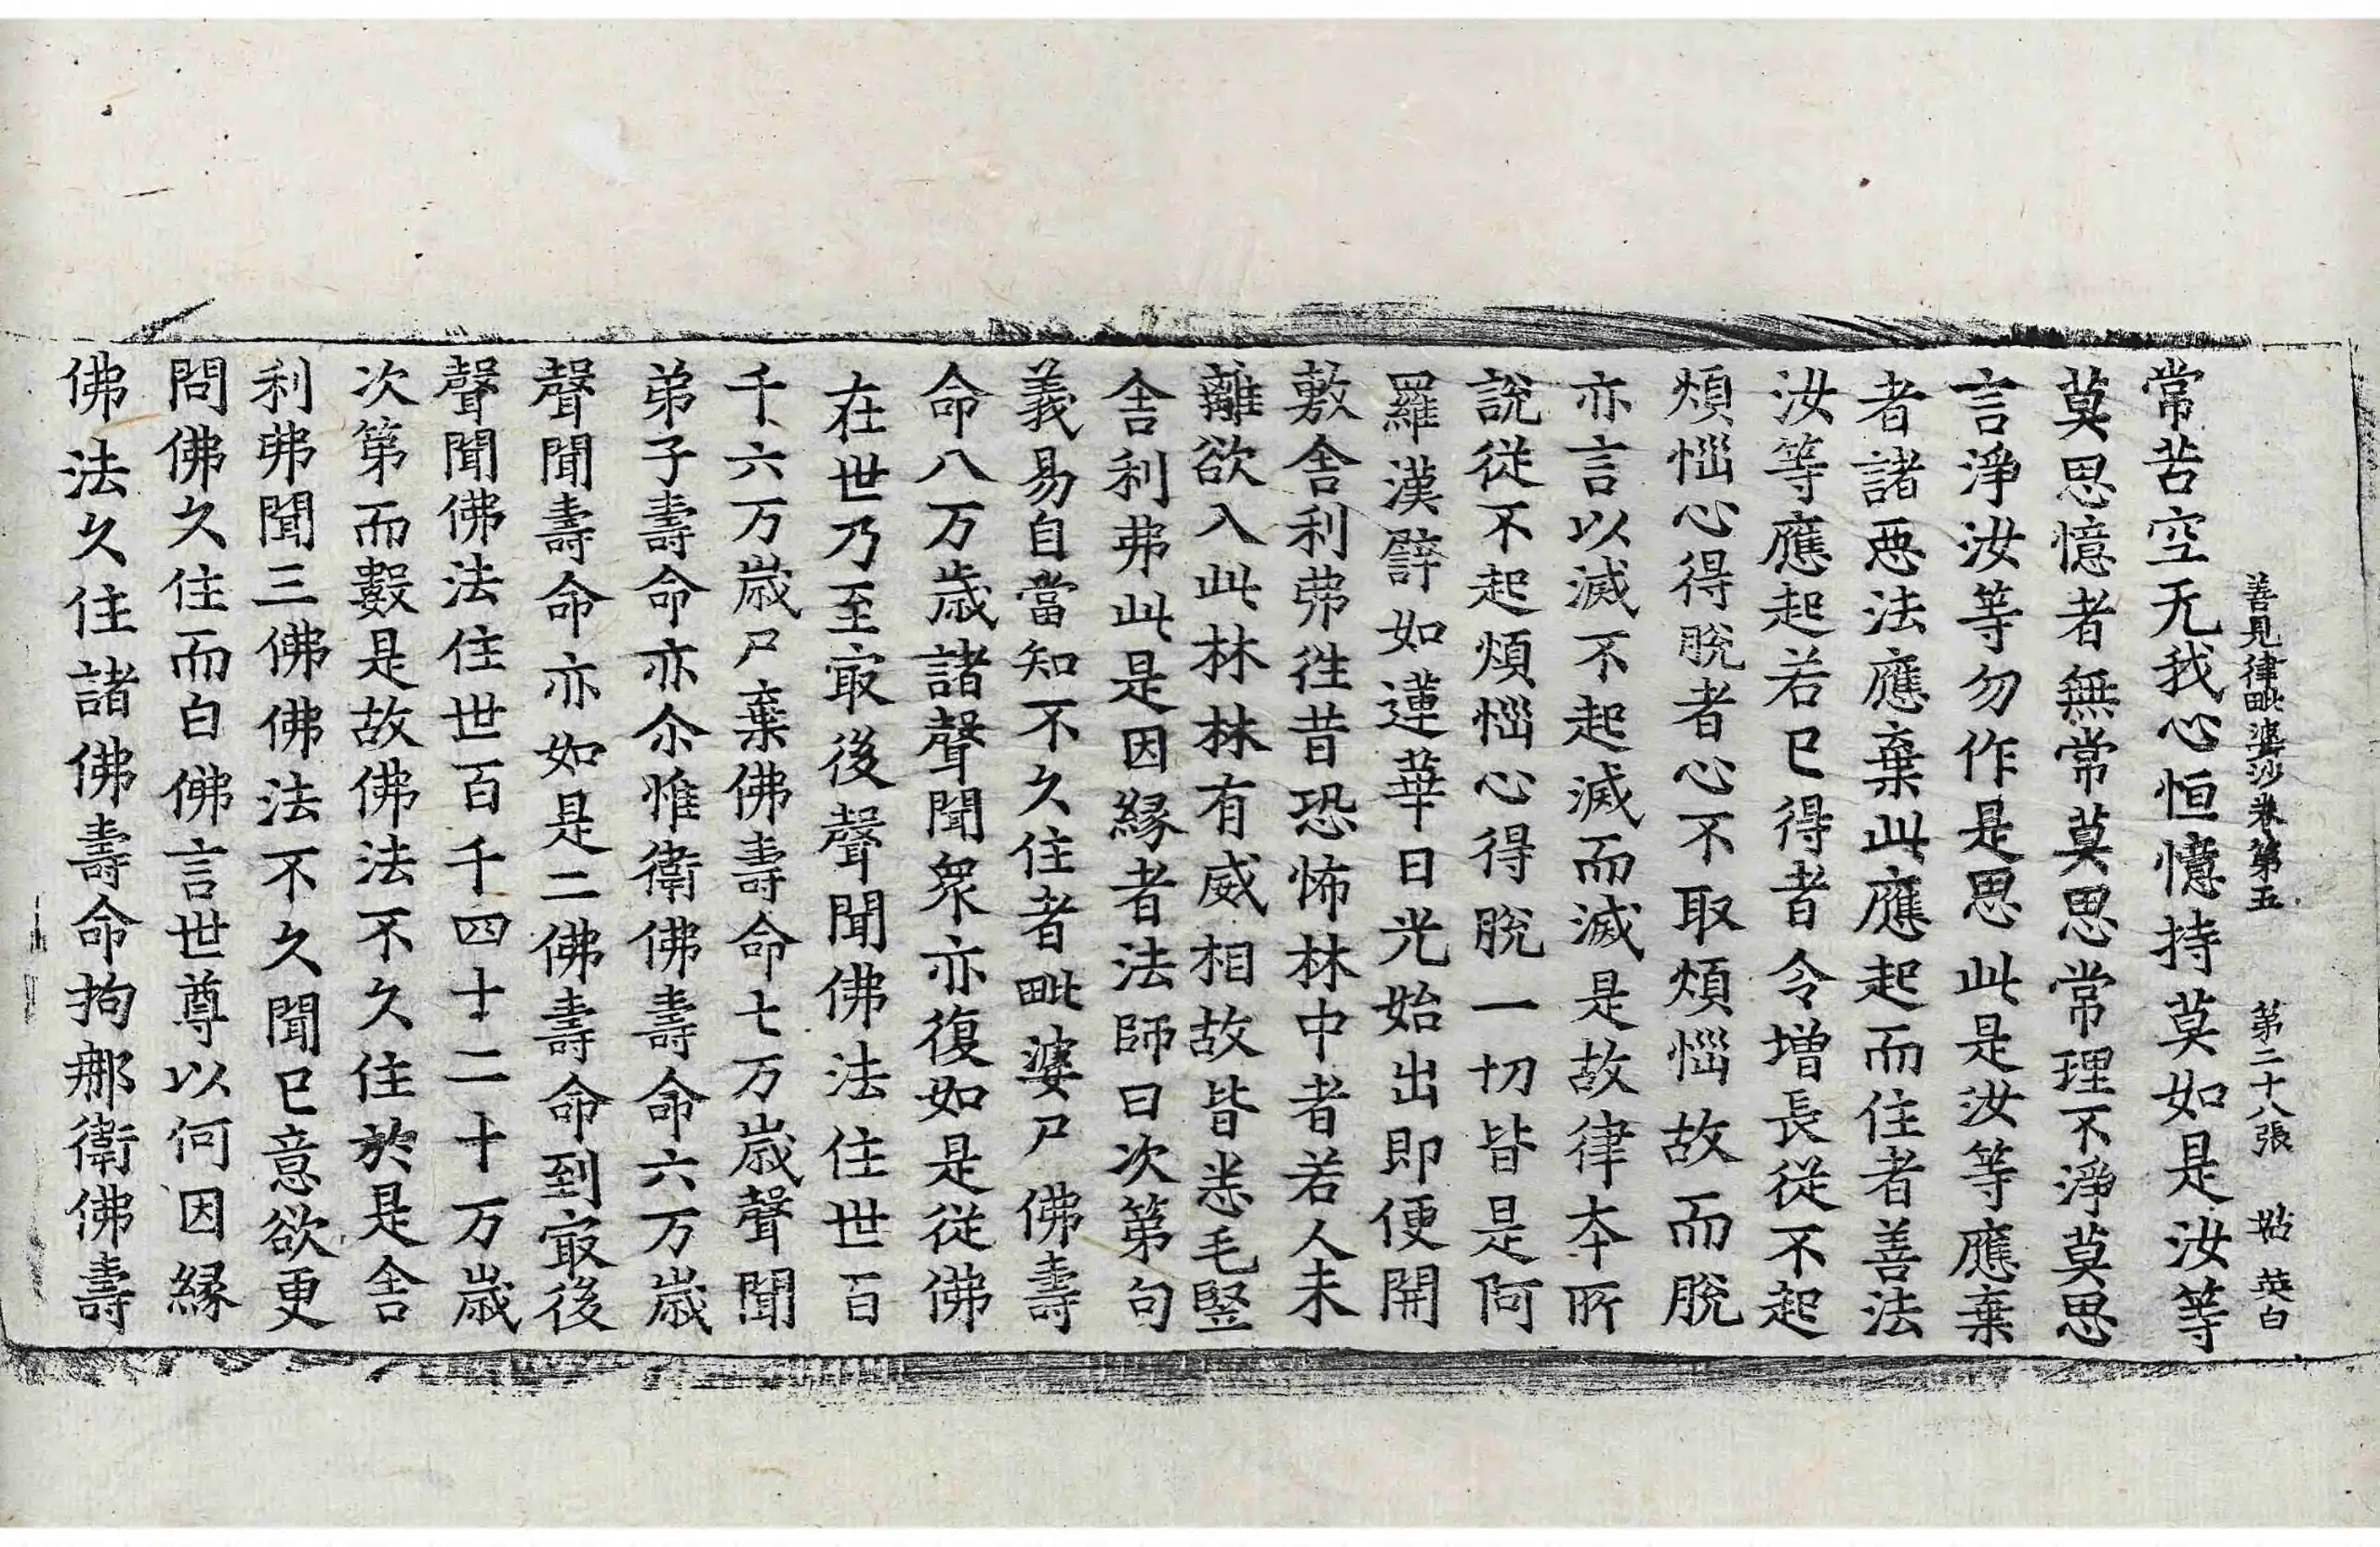 善見律毗婆沙卷第五 第二十八張 英白
常苦空无我心恒憶持莫如是汝等
莫思憶者無常莫思常理不淨莫思
言淨汝等勿作是思此是汝等應棄
者諸恶法應棄此應起而住者善法
汝等應起若已得者令增長從不起
煩惱心得脫者心不取煩惱故而脫
亦言以滅不起滅而滅是故律夲所
說從不起煩惱心得脫一切皆是阿
羅漢譬如蓮華日光始出即便開
敷舍利弗往昔恐怖林中者若人未
離欲入此林林有威相故皆恙毛竪
舍利弗此是因緣者法師曰次第句
義易自當知不久住者毗婆尸佛壽
命八万歲諸聲聞衆亦復如是從佛
在世乃至㝡後聲聞佛法住世百
千六万歲尸棄佛壽命七万歲聲聞
弟子壽命亦尒惟衛佛壽命六万歲
聲聞壽命亦如是二佛壽命到㝡後
聲聞佛法住世百千四十二十万歲
次第而數是故佛法不久住於是舍
利弗聞三佛佛法不久聞已意欲更
問佛久住而白佛言世尊以何因緣
佛法久住諸佛壽命拘那衛佛壽